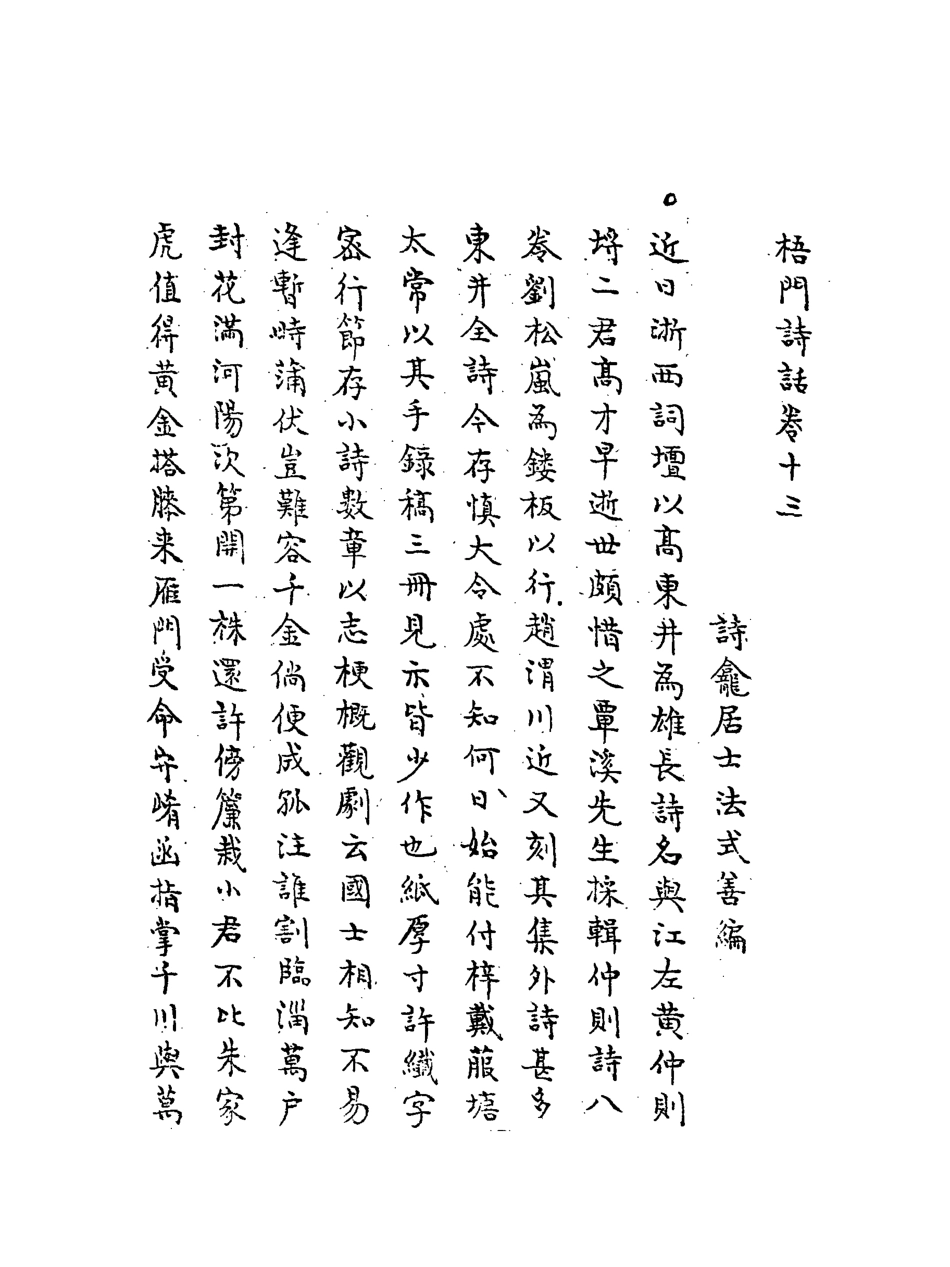 梧門詩話卷十三
詩龕居士法式善編
近日浙西詞壇以高東井為雄長詩名與江左黃仲則
埒二君高才早逝世頗惜之覃溪先生採輯仲則詩八
卷劉松嵐為鏤板以行趙渭川近又刻其集外詩甚多
東井全詩今存慎大令處不知何日始能付梓戴菔塘
太常以其手錄稿三冊見示皆少作也紙厚寸許纖字
密行節存小詩數章以志梗概觀劇云國士相知不易
逢暫時蒲伏豈難容千金倘便成孤注誰割臨淄萬戶
封花滿河陽次第開一株還許傍簾栽小君不比朱家
虎值得黃金搭膝来雁門受命守崤函指掌千川與萬